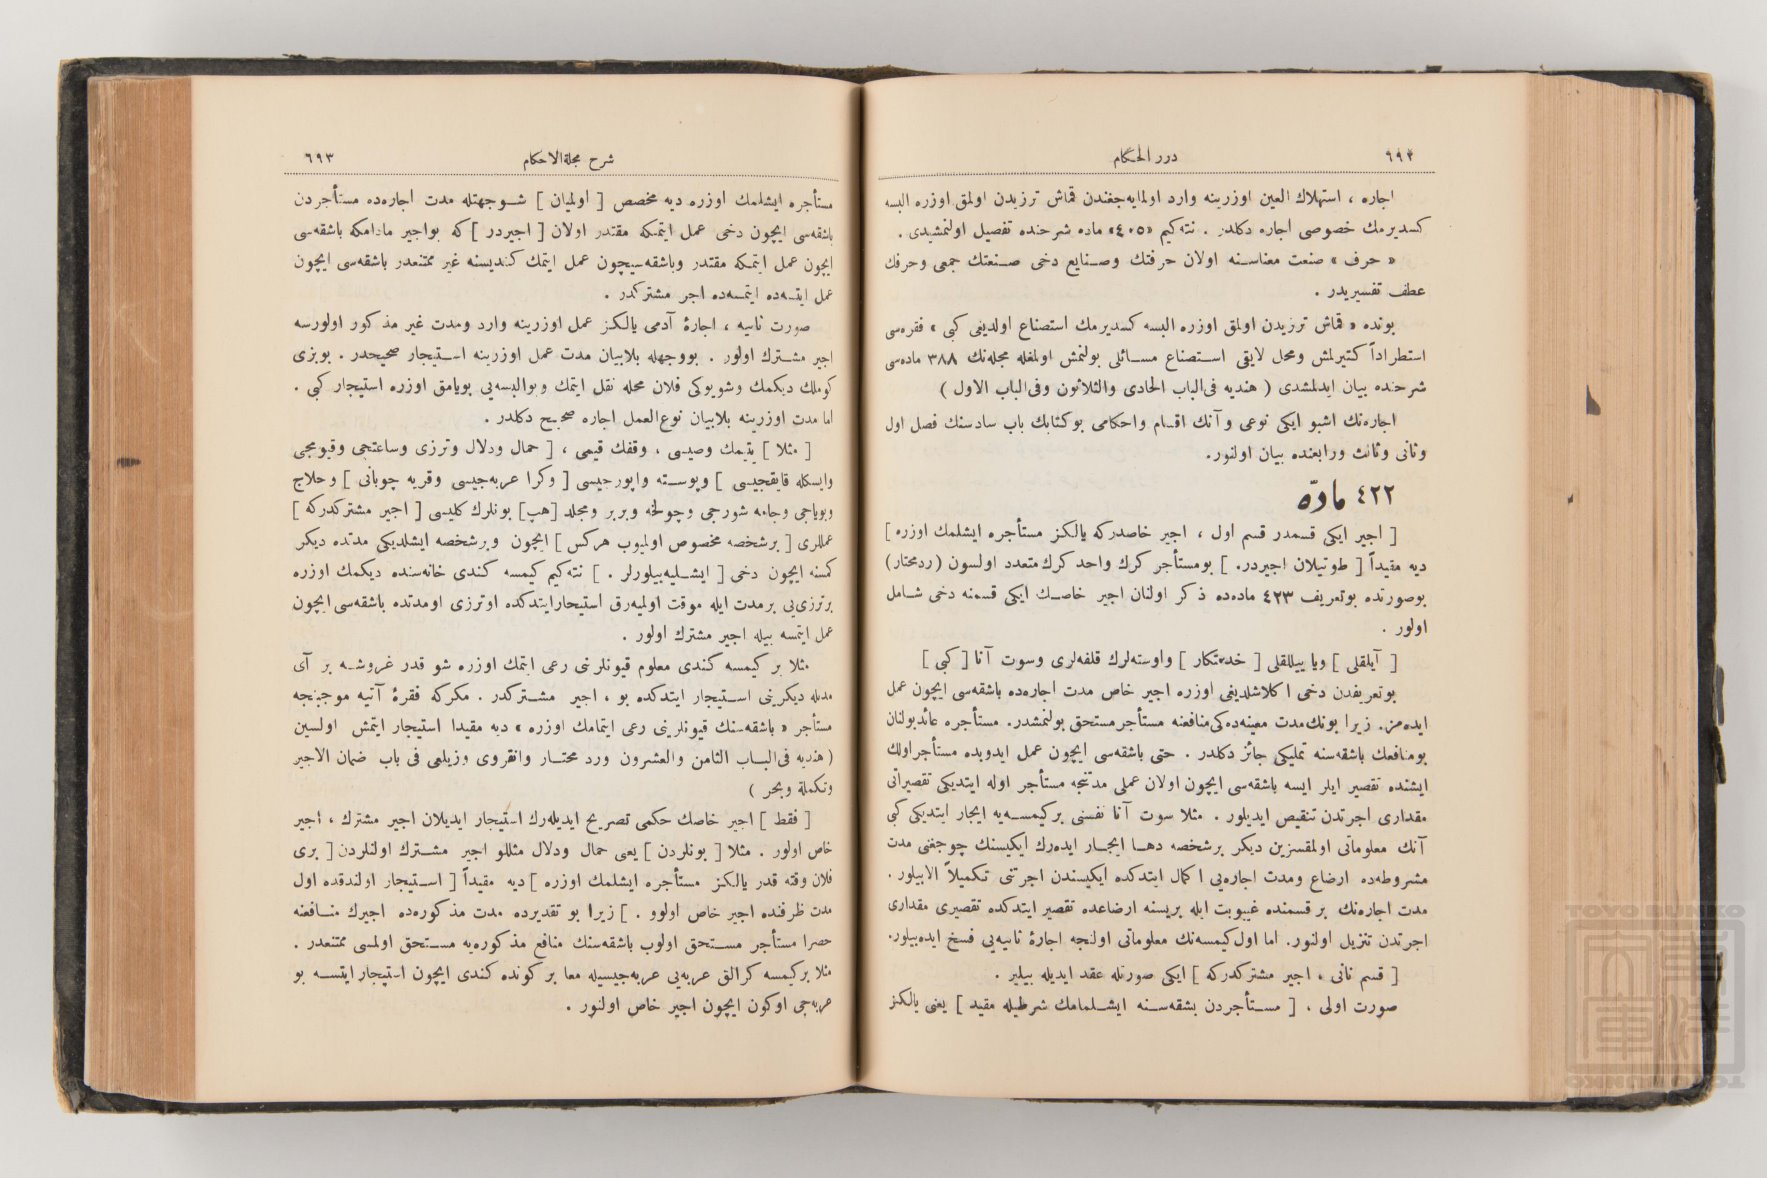 ٦٩٢
درر الحكام
اجاره ، استهلاك العين اوزرينه وارد اولمايه‌جغندن قماش ترزيدن اولمق اوزره البسه
كسديرمك خصوصى اجاره دكلدر . نته‌كيم «٤٠٥» ماده شرحنده تفصيل اولنمشيدى .
« حرف » صنعت معناسنه اولان حرفتك وصنايع دخى صنعتك جمعى وحرفك
عطف تفسيريدر .
بونده « قماش ترزيدن اولمق اوزره البسه كسديرمك استصناع اولديغى كبى » فقره‌سى
استطراداً كتيرلمش ومحل لايقى استصناع مسائلى بولنمش اولمغله مجله‌نك ٣٨٨ ماده‌سى
شرحنده بيان ايدلمشدى ( هنديه فى‌الباب الحادى والثلاثون وفى‌الباب الاول )
اجاره‌نك اشبو ايكى نوعى و آنك اقسام واحكامى بوكتابك باب سادسنك فصل اول
وثانى وثالث ورابعنده بيان اولنور.
٤٢٢ مادّه
[ اجير ايكى قسمدر قسم اول ، اجير خاصدركه يالكز مستأجره ايشلمك اوزره ]
ديه مقيداً [ طوتيلان اجيردر. ] بومستأجر كرك واحد كرك متعدد اولسون (ردمحتار)
بوصورتده بوتعريف ٤٢٣ ماده‌ده ذكر اولنان اجير خاصك ايكى قسمنه دخى شامل
اولور .
[ آيلقلى ] ويا ييللقلى [ خدمتكار ] واوسته‌لرك قلفه‌لرى وسوت آنا [ كبى ]
بوتعريفدن دخى اكلاشلديغى اوزره اجير خاص مدت اجاره‌ده باشقه‌سى ايچون عمل
ايده‌مز. زيرا بونك مدت معينه‌ده‌كى‌منافعنه مستأجر مستحق بولنمشدر. مستأجره عائد بولنان
بومنافعك باشقه‌سنه تمليكى جائز دكلدر . حتى باشقه‌سى ايچون عمل ايدوبده مستأجر اولك
ايشنده تقصير ايلر ايسه باشقه‌سى ايچون اولان عملى مدتنجه مستأجر اوله ايتديكى تقصيراتى
مقدارى اجرتدن تنقيص ايديلور . مثلا سوت آنا نفسنى بركيمسه‌يه ايجار ايتديكى كبى
آنك معلوماتى اولمقسزين ديكر برشخصه دها ايجار ايده‌رك ايكيسنك چوجغنى مدت
مشروطه‌ده ارضاع ومدت اجاره‌يى اكمال ايتدكده ايكيسندن اجرتنى تكميلاً آلابيلور .
مدت اجاره‌نك برقسمنده غيبوبت ايله بريسنه ارضاعده تقصير ايتدكده تقصيرى مقدارى
اجرتدن تنزيل اولنور. اما اول‌كيمسه‌نك معلوماتى اولنجه اجارهٔ ثانيه‌يى فسخ ايده‌بيلور.
[ قسم ثانى ، اجير مشتركدركه ] ايكى صورتله عقد ايديله بيلير .
صورت اولى ، [ مستأجردن بشقه‌سنه ايشلمامك شرطيله مقيد ] يعنى يالكز
شرح مجلة‌الاحكام
٦٩٣
مستأجره ايشلمك اوزره ديه مخصص [ اولميان ] شوجهتله مدت اجاره‌ده مستأجردن
باشقه‌سى ايچون دخى عمل ايتمكه مقتدر اولان [ اجيردر ] كه بواجير مادامكه باشقه‌سى
ايچون عمل ايتمكه مقتدر وباشقه‌سيچون عمل ايتمك كنديسنه غير ممتنعدر باشقه‌سى ايچون
عمل ايتسه‌ده ايتمسه‌ده اجير مشتركدر .
صورت ثانيه ، اجارهٔ آدمى يالكز عمل اوزرينه وارد ومدت غير مذكور اولورسه
اجير مشترك اولور . بووجهله بلابيان مدت عمل اوزرينه استيجار صحيحدر . بوبزى
كوملك ديكمك وشويوكى فلان محله نقل ايتمك وبوالبسه‌يى بويامق اوزره استيجار كبى .
اما مدت اوزرينه بلابيان نوع‌العمل اجاره صحيح دكلدر .
[ مثلا ] يتيمك وصيسى ، وقفك قيمى ، [ حمال ودلال وترزى وساعتجى وقيومجى
وايسكله قايقجيسى ] وپوسته واپورجيسى [ وكرا عربه‌جيسى وقريه چوبانى ] وحلاج
وبوياجى وجامه شورجى وچولخه وبربر ومجلد [هپ] بونلرك كليسى [ اجير مشتركدركه ]
عمللرى [ برشخصه مخصوص اولميوب هركس ] ايچون وبرشخصه ايشلديكى مدتده ديكر
كمسنه ايچون دخى [ ايشليه‌بيلورلر . ] نته‌كيم كيمسه كندى خانه‌سنده ديكمك اوزره
برترزى‌يى برمدت ايله موقت اولميه‌رق استيجارايتدكده اوترزى اومدتده باشقه‌سى ايچون
عمل ايتمسه بيله اجير مشترك اولور .
مثلا بر كيمسه كندى معلوم قيونلرنى رعى ايتمك اوزره شو قدر غروشه بر آى
مدتله ديكرينى استيجار ايتدكده بو ، اجير مشتركدر . مكركه فقرهٔ آتيه موجبنجه
مستأجر « باشقه‌سنك قيونلرينى رعى ايتمامك اوزره » ديه مقيدا استيجار ايتمش اولسين
( هنديه فى‌الباب الثامن والعشرون ورد محتار وانقروى وزيلعى فى باب ضمان الاجير
وتكملة وبحر )
[ فقط ] اجير خاصك حكمى تصريح ايديله‌رك استيجار ايديلان اجير مشترك ، اجير
خاص اولور . مثلا [ بونلردن ] يعنى حمال ودلال مثللو اجير مشترك اولنلردن [ برى
فلان وقته قدر يالكز مستأجره ايشلمك اوزره ] ديه مقيداً [ استيجار اولندقده اول
مدت ظرفنده اجير خاص اولور . ] زيرا بو تقديرده مدت مذكوره‌ده اجيرك منافعنه
حصرا مستأجر مستحق اولوب باشقه‌سنك منافع مذكوره‌يه مستحق اولمسى ممتنعدر .
مثلا بركيمسه كرالق عربه‌يى عربه‌جيسيله معا بركونده كندى ايچون استيجار ايتسه بو
عربه‌جى اوكون ايچون اجير خاص اولنور .
TOYO BUNKO